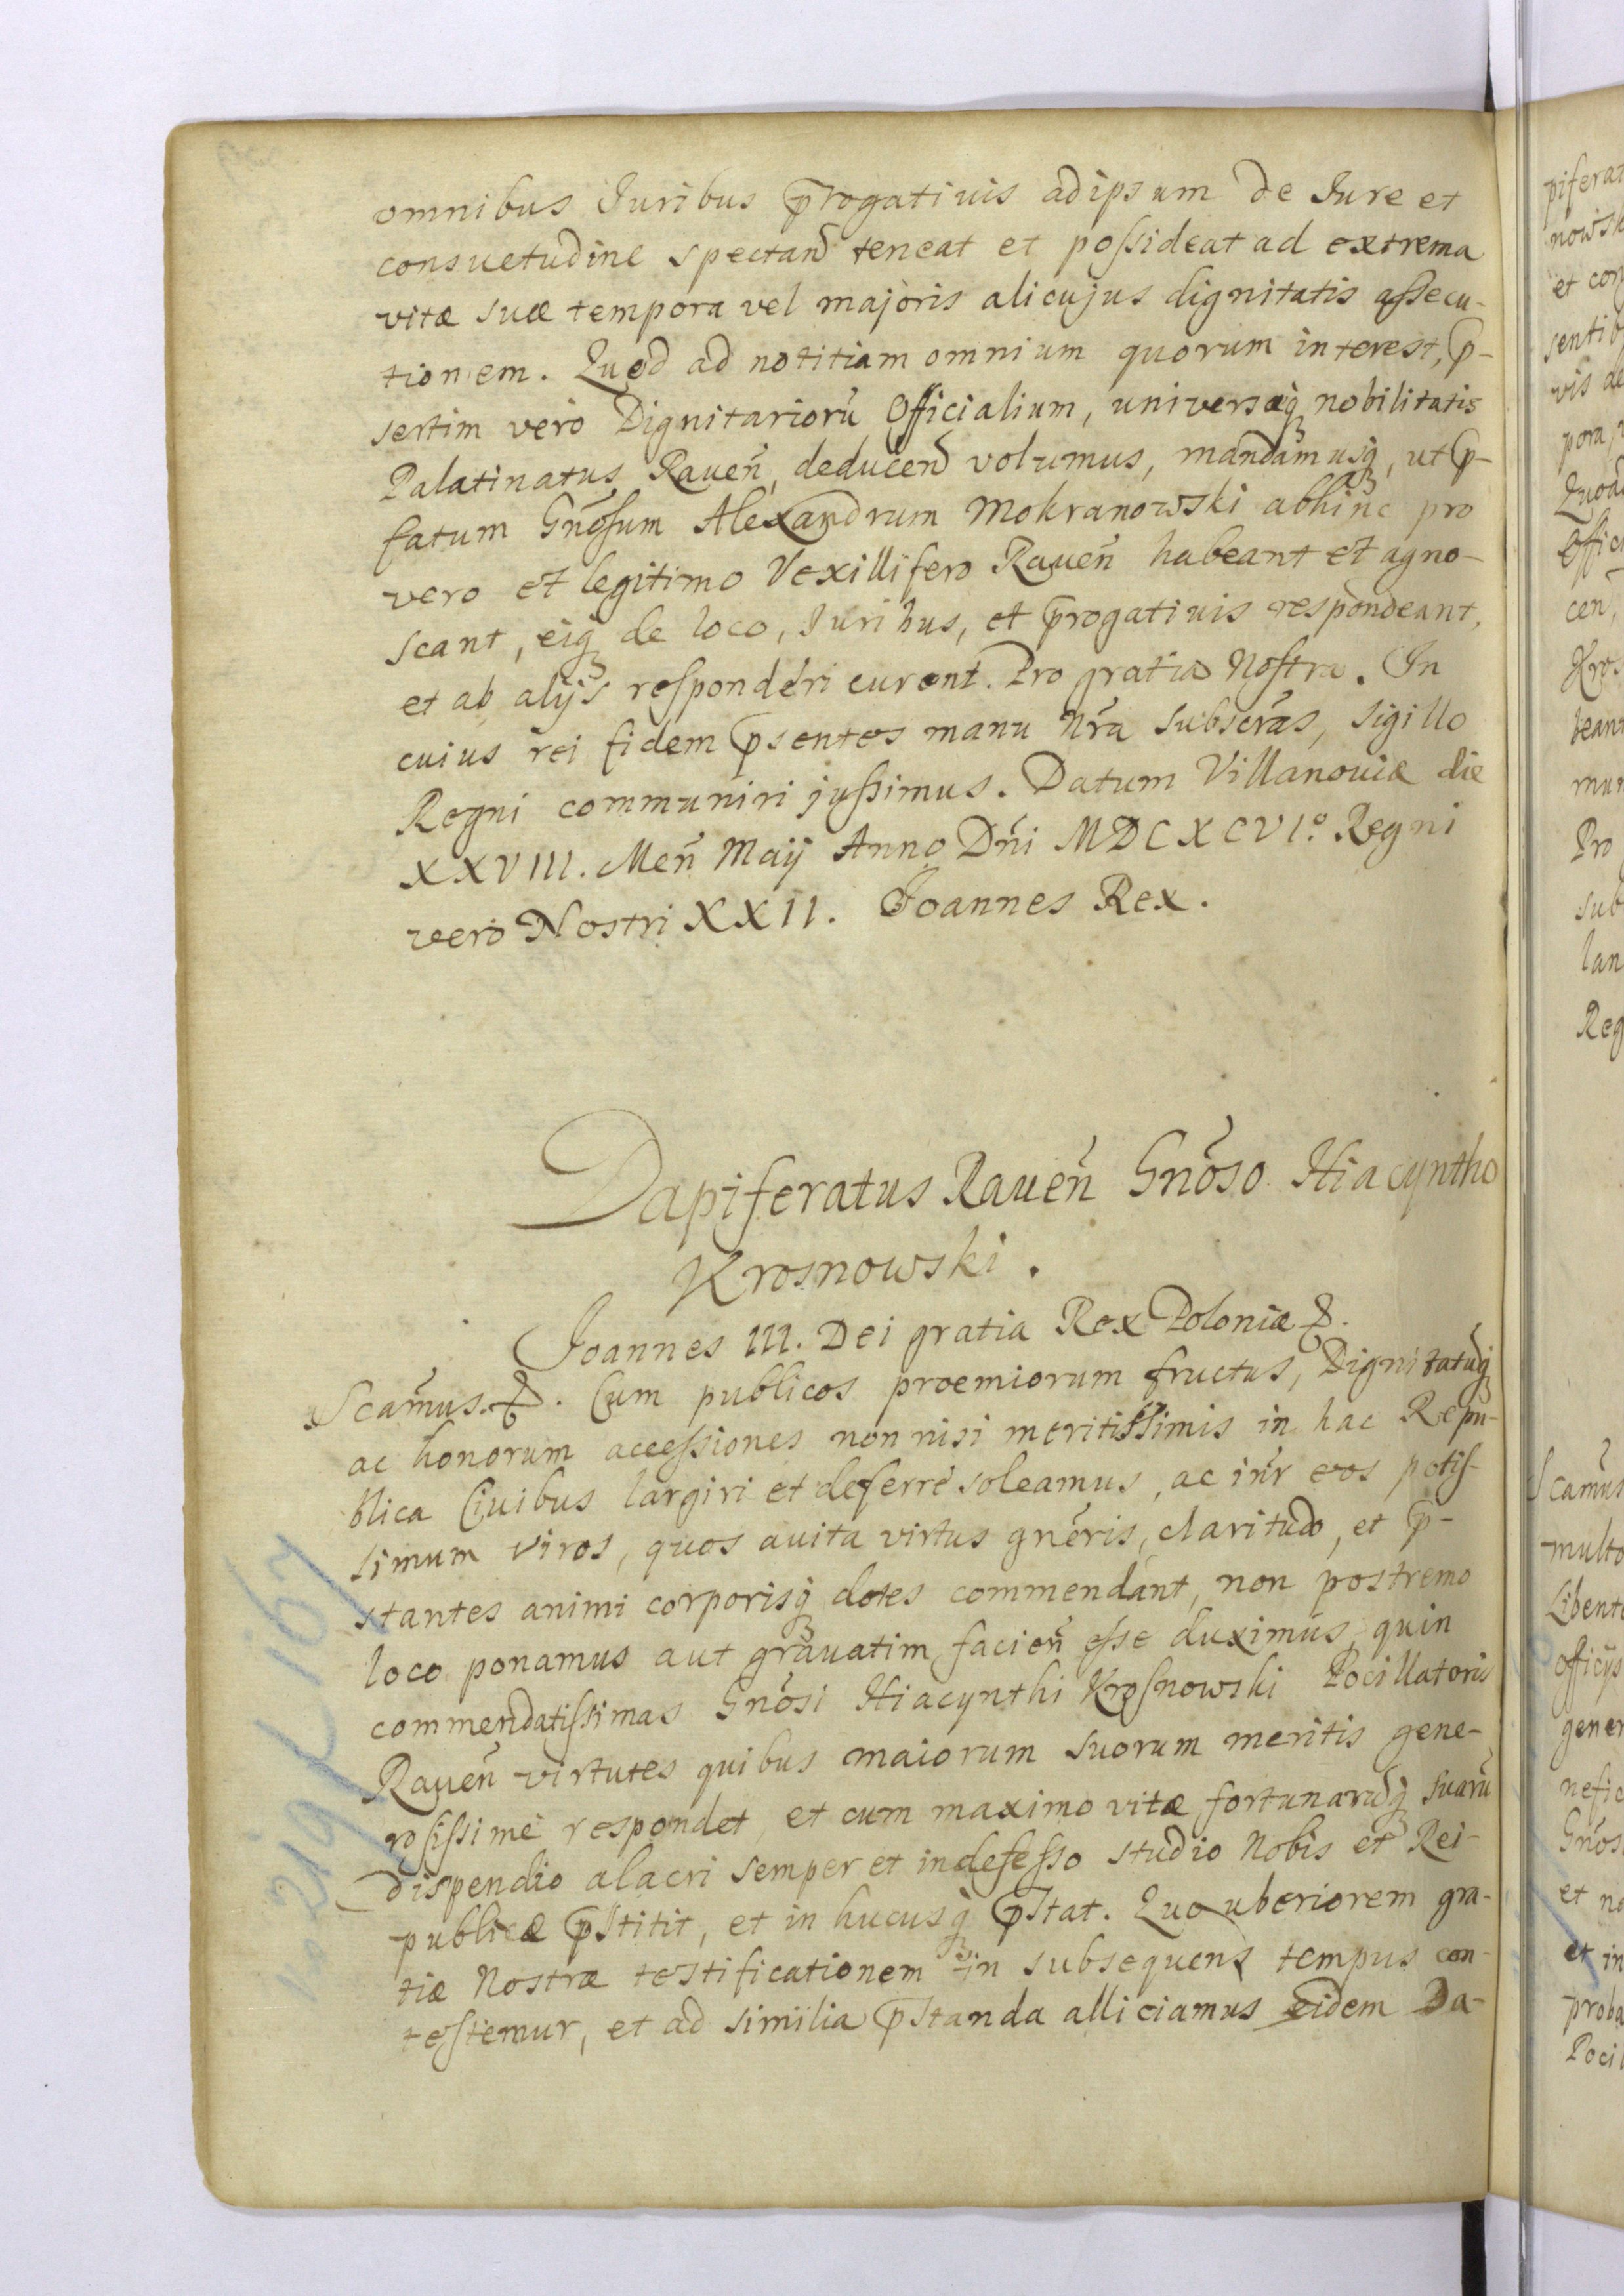 omnibus Iuribus p̄rogativis ad ipsum de Iure et
consuetudine spectan̄d teneat et possideat ad extrema
vitæ suæ tempora vel majoris alicujus dignitatis assecu-
tionem. Quod ad notitiam omnium quorum interest, p̄-
sertim vero Dignitariorū Officialium, universæq; nobilitatis
Palatinatus Raven̄, deducen̄d volumus, mandamusq;, ut p̄-
fatum Gnōsum Alexandrum Mokranowski abhinc pro
vero et legitimo Vexillifero Raven̄ habeant et agno-
scant, eiq; de loco, Iuribus, et p̄rogativis respondeant,
et ab alijs responderi curent. Pro gratia Nostra. In
cuius rei fidem p̄sentes manu Nr̄a subscr̄as, sigillo
Regni communiri jussimus. Datum Villanoviæ die
XXVIII. Men̄ Maij Anno Dn̄i MDCXCVI.º Regni
vero Nostri XXII. Joannes Rex.
Dapiferatus Raven̄ Gnōso Hiacyntho
Krosnowski.
Joannes III. Dei gratia Rex Poloniæ &.
Scam̄us. &. Cum publicos proemiorum fructus, Dignitatūq;
ac honorum accessiones non nisi meritissimis in hac Repu-
blica Civibus largiri et deferre soleamus, ac int̄r eos potis-
simum viros, quos avita virtus gnēris, claritudo, et p̄-
stantes animi corporisq; dotes commendant, non postremo
loco ponamus aut gravatim facien̄ esse duximus, quin
commendatissimas Gnōsi Hiacynthi Krosnowski Pocillatoris
Raven̄ virtutes quibus maiorum suorum meritis gene-
rosissime respondet, et cum maximo vitæ fortunarūq; suarū
dispendio alacri semper et indefesso studio Nobis et Rei-
publicæ p̄stitit, et in hucusq; p̄stat. Quo uberiorem gra-
tiæ Nostræ testificationem in subsequens tempus con-
testemur, et ad similia p̄standa alliciamus eidem Da-